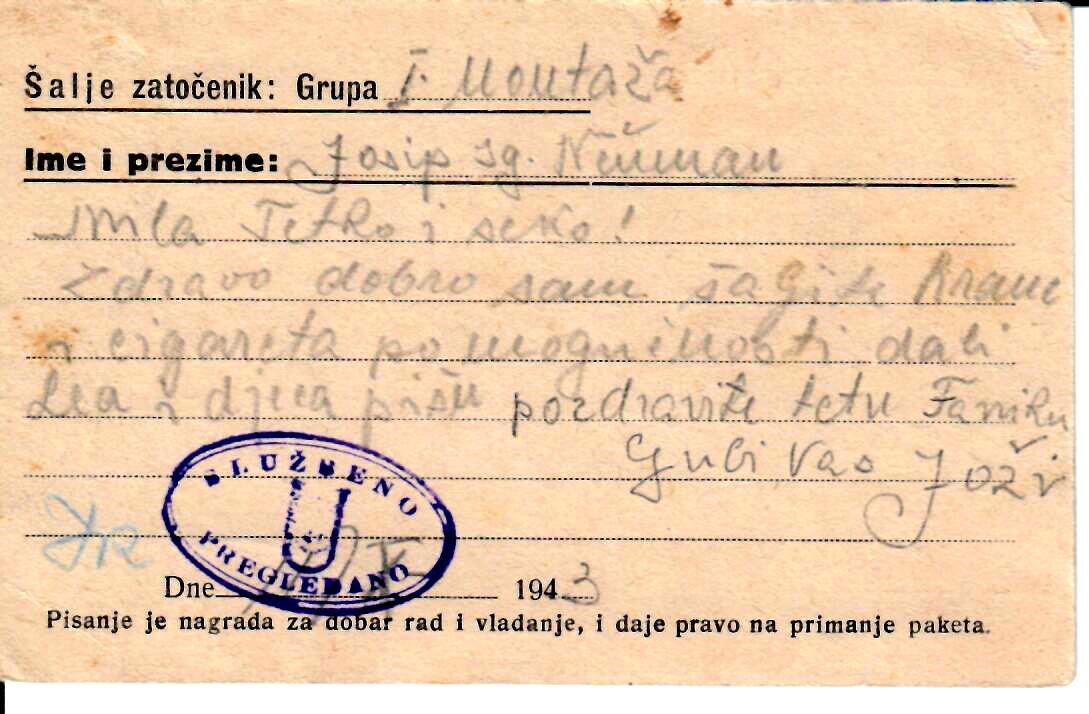 Šalje zatočenik: Grupa I. Montaža
Ime i prezime: Josip Ig. Neuman
Mila Tetko i seko!
Zdravo dobro sam šaljite hrane
i cigareta po mogućnosti dali
Lea i djeca pišu pozdravite tetu Faniku
Ljubi Vas Joži
SLUŽBENO
U
PREGLEDANO
Dne X 1943
Pisanje je nagrada za dobar rad i vladanje, i daje pravo na primanje paketa.